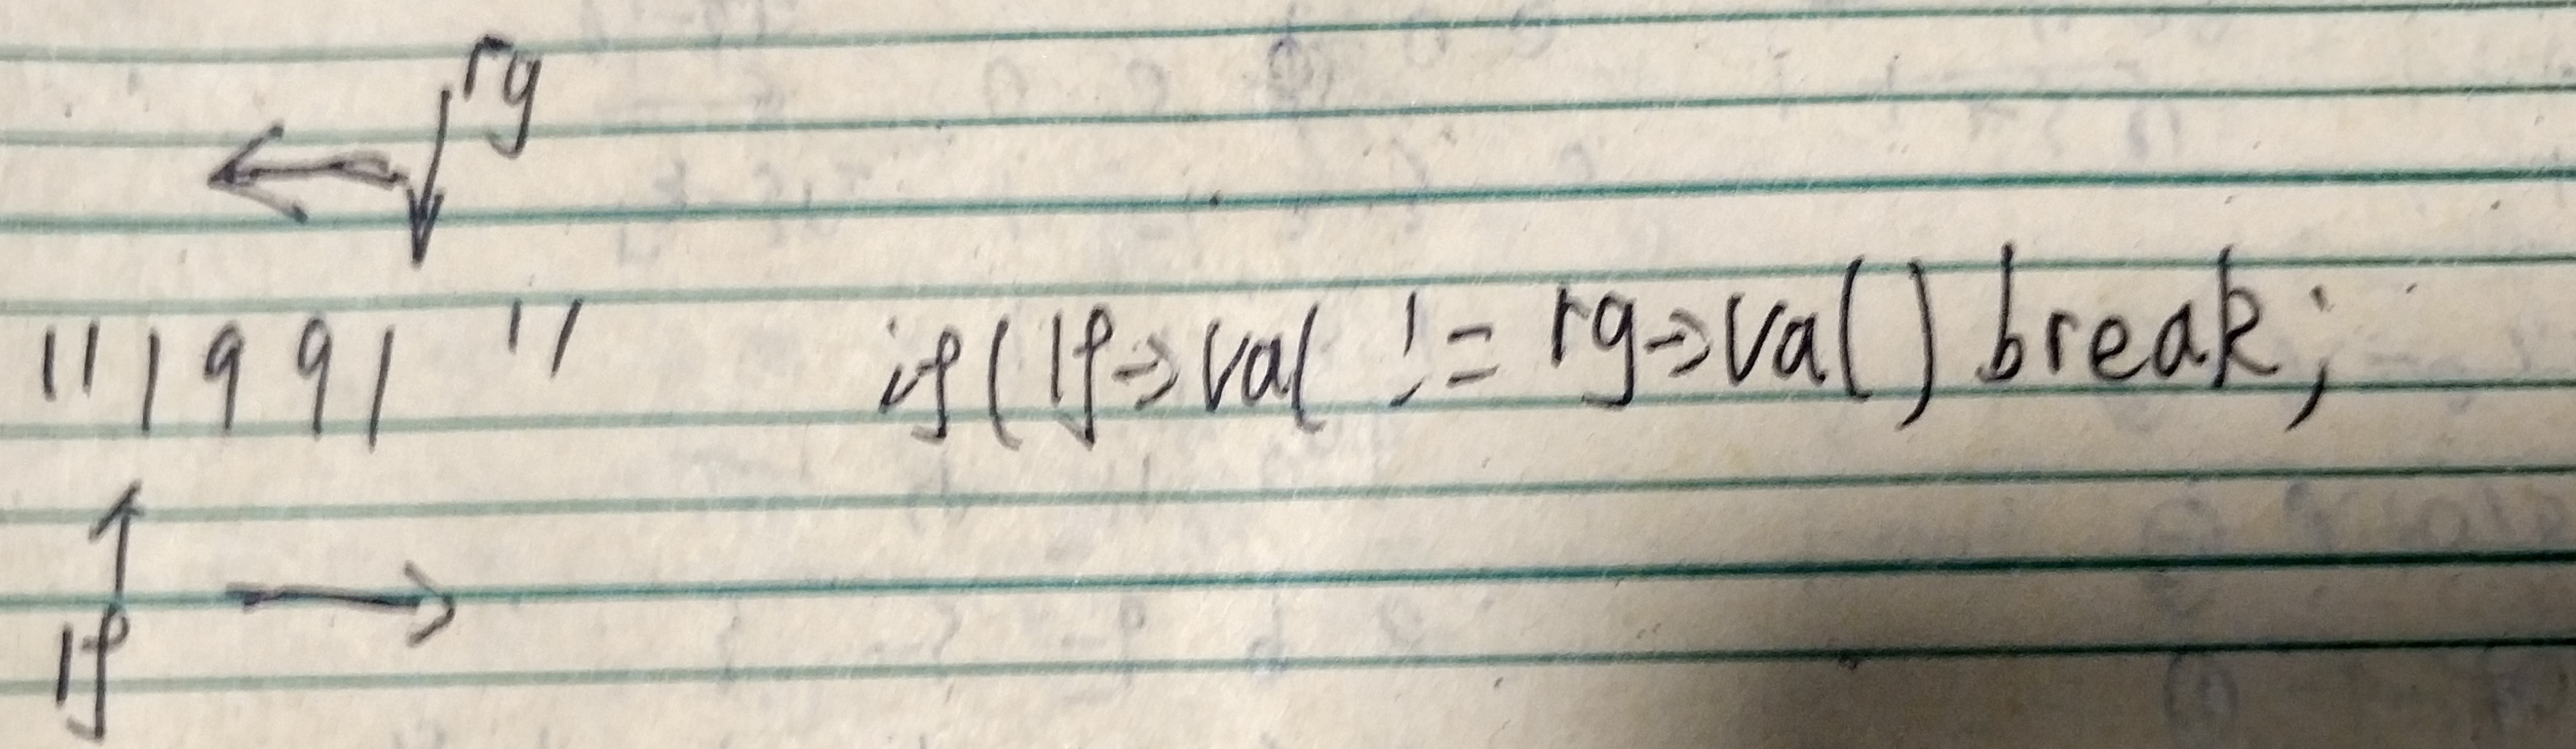 rg
"1991" if(lf->val != rg->val) break;
lf